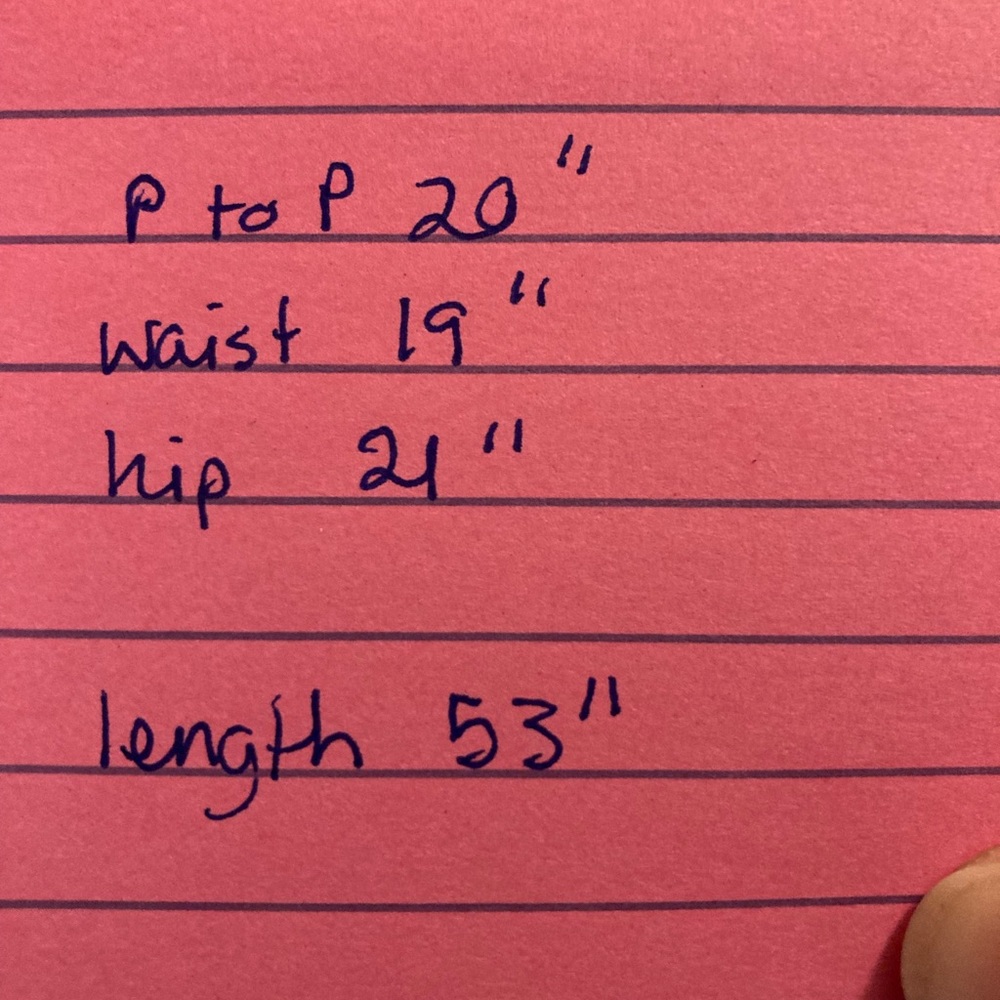 P to P 20"
waist 19"
hip 21"
length 53"